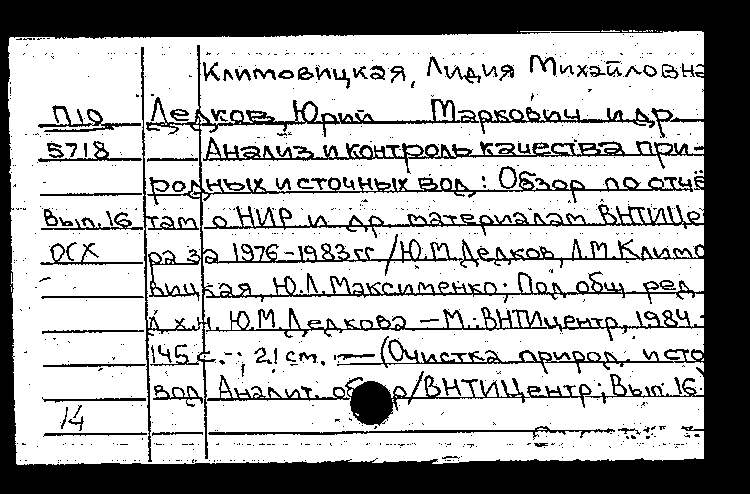 Климовицкая, Лидия Михайловна
П10 Дедков, Юрий Маркович и др.
5718 Анализ и контроль качества при-
родных и сточных вод: Обзор по отчё
Вып.16 там о НИР и др. материалам ВНТИЦе
ОСХ ра за 1976-1983гг /Ю.М.Дедков, Л.М.Климо
вицкая, Ю.Л.Максименко; Под общ. ред.
д.х.н. Ю.М.Дедкова -М.:ВНТИцентр, 1984.-
145 с.-; 21 см. -(Очистка природ. и сто
вод. Аналит. обзор/ВНТИЦентр; Вып.16)
14